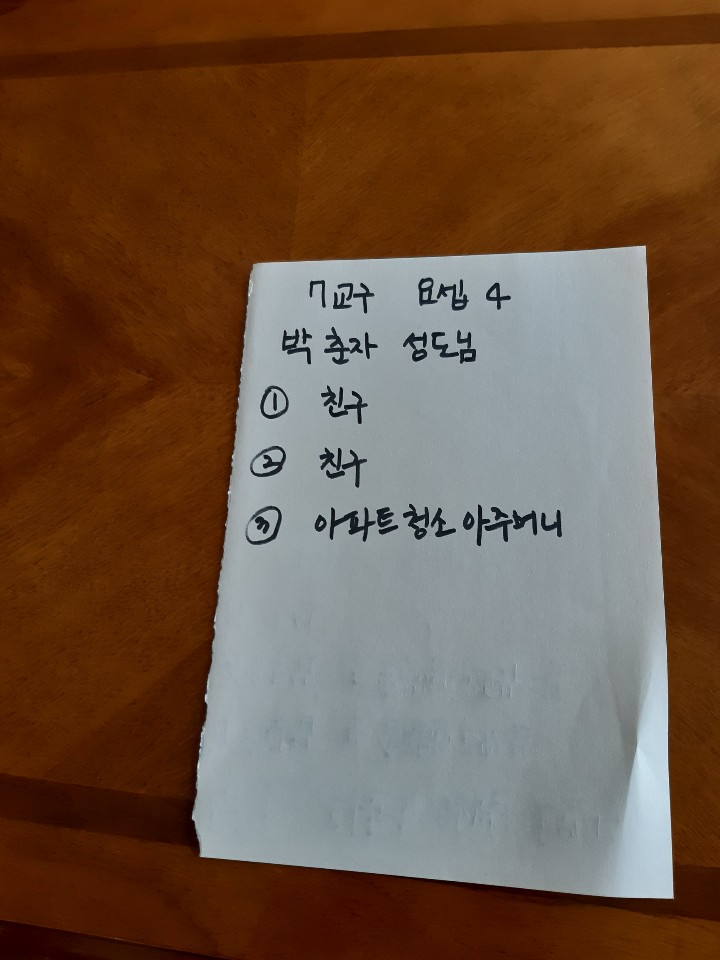 7교구 요셉 4
박춘자 성도님
① 친구
② 친구
③ 아파트 청소 아주머니